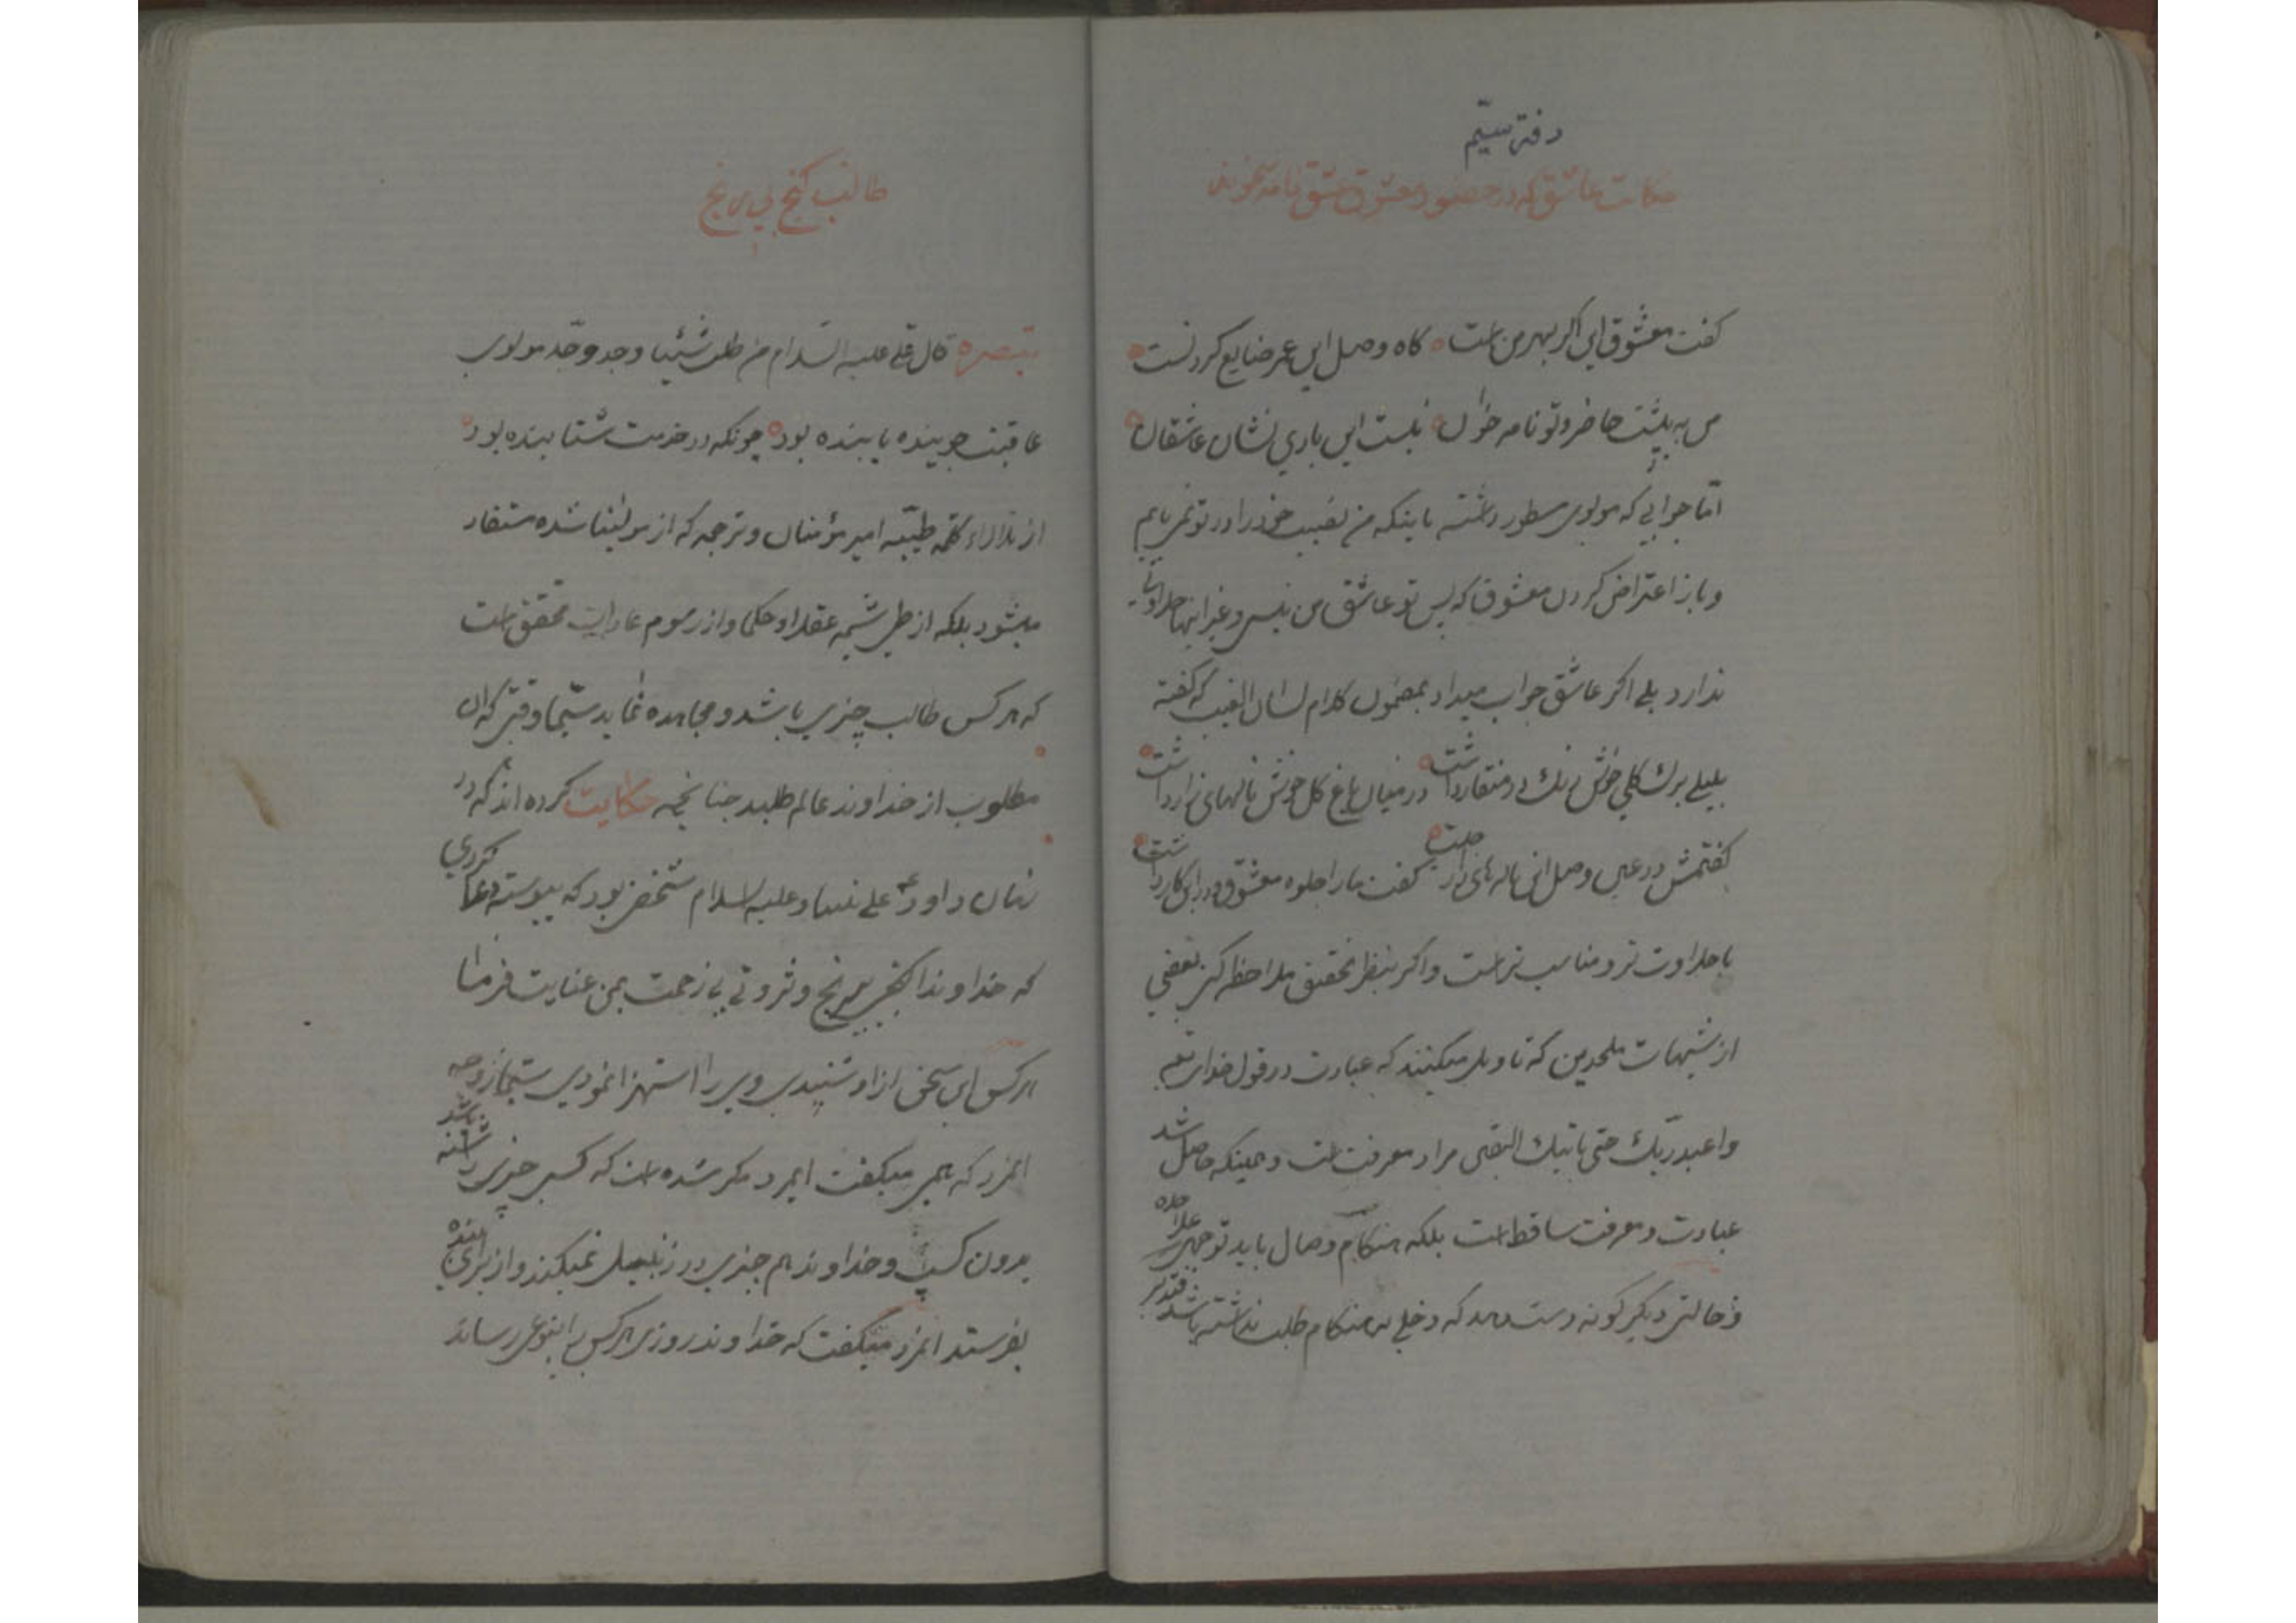 دفتر سیّم
حکایت عاشق که در حضور معشوق عشق نامه میخواند
گفت معشوق این اگر بهر من است گاه وصل این عمر ضایع کردنست
من به پیشت حاضر و تو نامه خوان نیست این باری نشان عاشقان
امّا جوابی که مولوی مسطور داشته باینکه من نصیب خود را در تو نمی یابم
و باز اعتراض کردن معشوق که پس تو عاشق من نیستی و غیر اینها حلاوتی
ندارد بلی اگر عاشق جواب میداد بمضمون کلام لسان الغیب که گفته
بلبلی برک کلی خوش رنک در منقار داشت در میان باغ کل خوش نالهای زار داشت
گفتمش در عین وصل این ناله های زار چیست گفت ما را جلوه معشوق در این کار داشت
با حلاوت تر و مناسب تر است و اگر بنظر تحقیق ملاحظه کنی بعضی
از شبهات ملحدین که تاویل میکنند که عبادت در قول خدای تعم
واعبد ربّک حتی یاتیک الیقین مراد معرفت است و همینکه حاصل شد
عبادت و معرفت ساقط است بلکه هنکام وصال باید توجهی علاحده
و حالتی دیگر کونه دست دهد که دخلی به هنکام طلب نداشته باشد فتدبر
طالب کنج بی رنج
تبصره قال علی علیه السلام من طلب شیئا وجد وجدّ مولوی
عاقبت جوینده یابنده بود چونکه در خدمت شتابنده بود
از کلمه طیّبه امیر مؤمنان و ترجمه که از مولینا شده مستفاد
میشود بلکه از عقلا و حکما و از رسوم عادات محقق است
که هر کس طالب چیزی باشد و مجاهده نماید سیّما وقتی که آن
مطلوب از خداوند عالم طلبد چنانچه حکایت کرده اند که در
زمان داود علی نبینا و علیه السلام شخصی بود که پیوسته دعا کردی
که خداوندا کنجی بی رنج و ثروتی بی زحمت بمن عنایت فرما
هر کس این سخن از او شنیدی ویرا استهزا نمودی سیّما زوجه
انمرد که همی میکفت ایمرد مکر شده است که کسی چیزی داشته باشد
بدون کسب و خداوند هم چیزی در زنبیل نمیکند و از برای بنده
بفرستد انمرد میکفت که خداوند روزی هر کس را بنوعی رساند